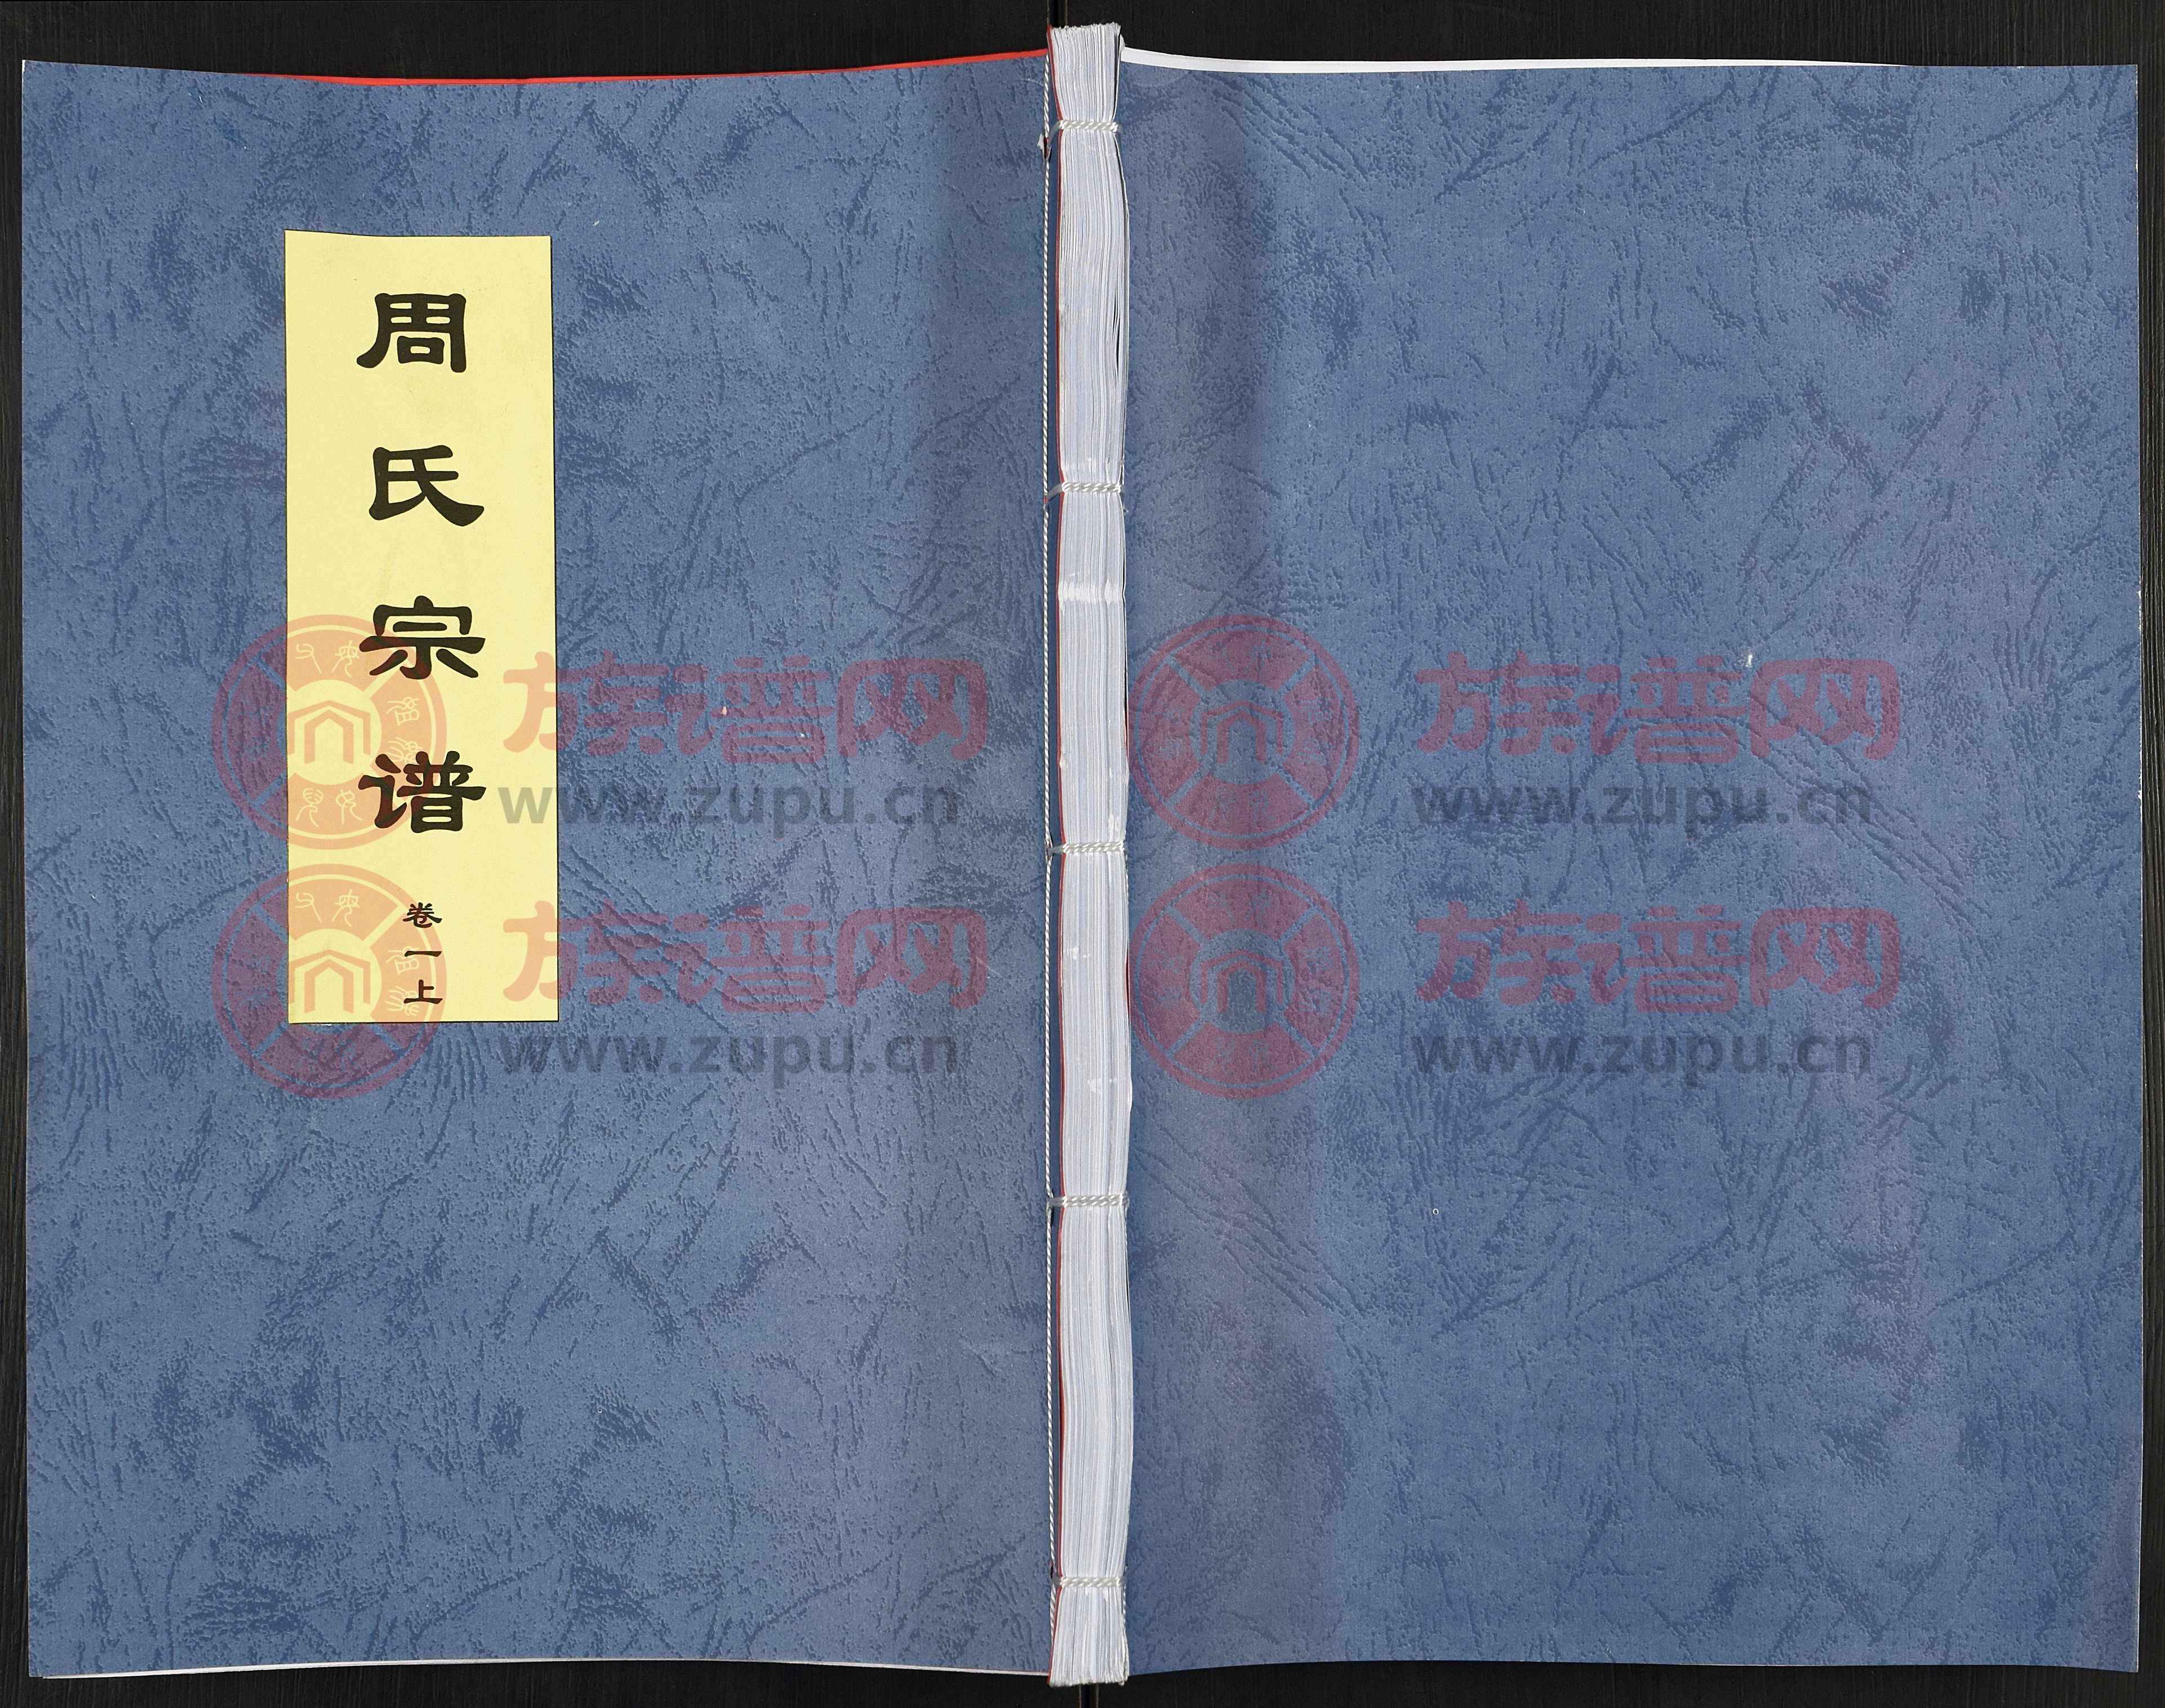 周氏宗谱
卷一上
族谱网
www.zupu.cn
族谱网
www.zupu.cn
族谱网
www.zupu.cn
族谱网
www.zupu.cn